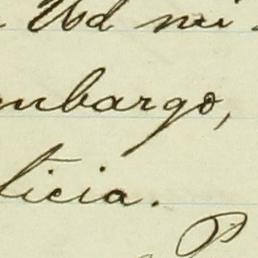 Ud mi
embargo,
ticia.
P